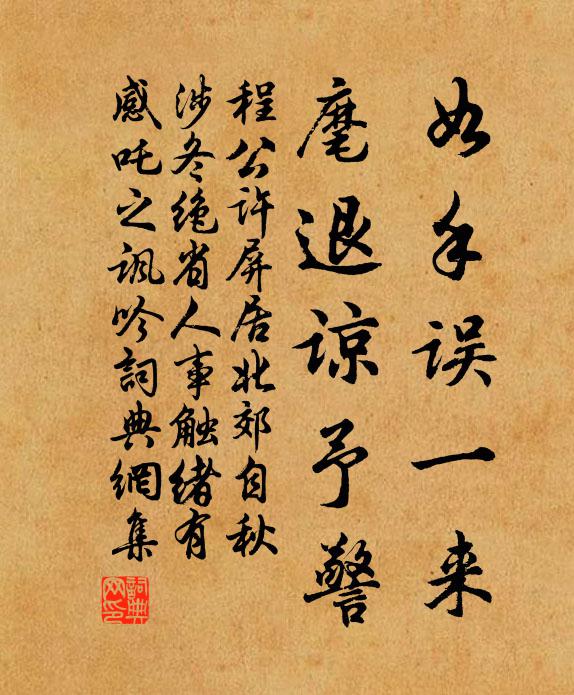 如手误一来
麾退谅予警
程公许屏居北郊自秋
涉冬绝省人事触绪有
感吒之讽吟詞典網集
詞典
网印